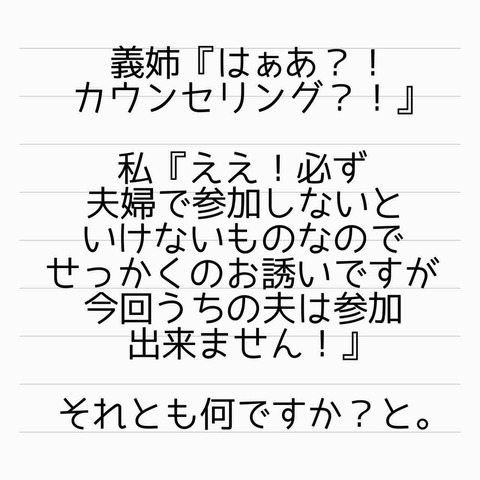 義姉『はぁあ？！
カウンセリング？！』
私『ええ！必ず
夫婦で参加しないと
いけないものなので
せっかくのお誘いですが
今回うちの夫は参加
出来ません！』
それとも何ですか？と。